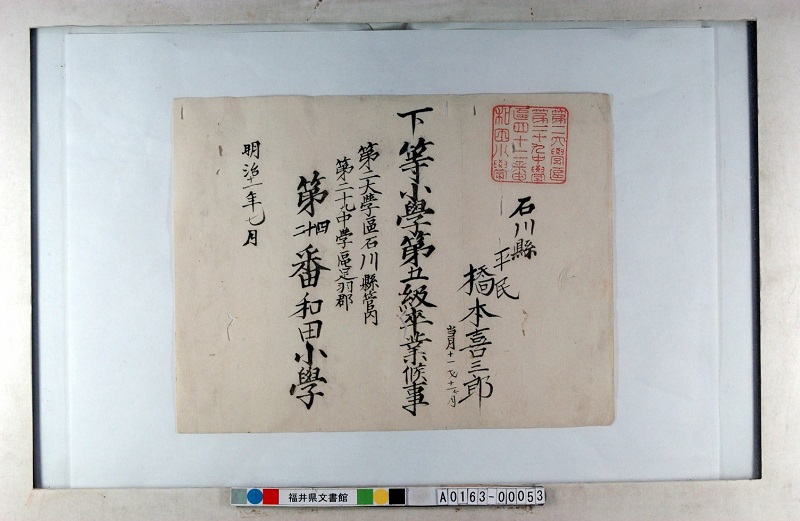 第二大學區
第二十九中學
區四十二番
和田小學
石川縣
平民
橋本喜三郎
当月十一年十一ヶ月
下等小學第五級卒業候事
第二大學區石川縣管内
第二十九中學區足羽郡
第四十二番和田小學
明治十一年七月
福井県文書館
A0163-00053